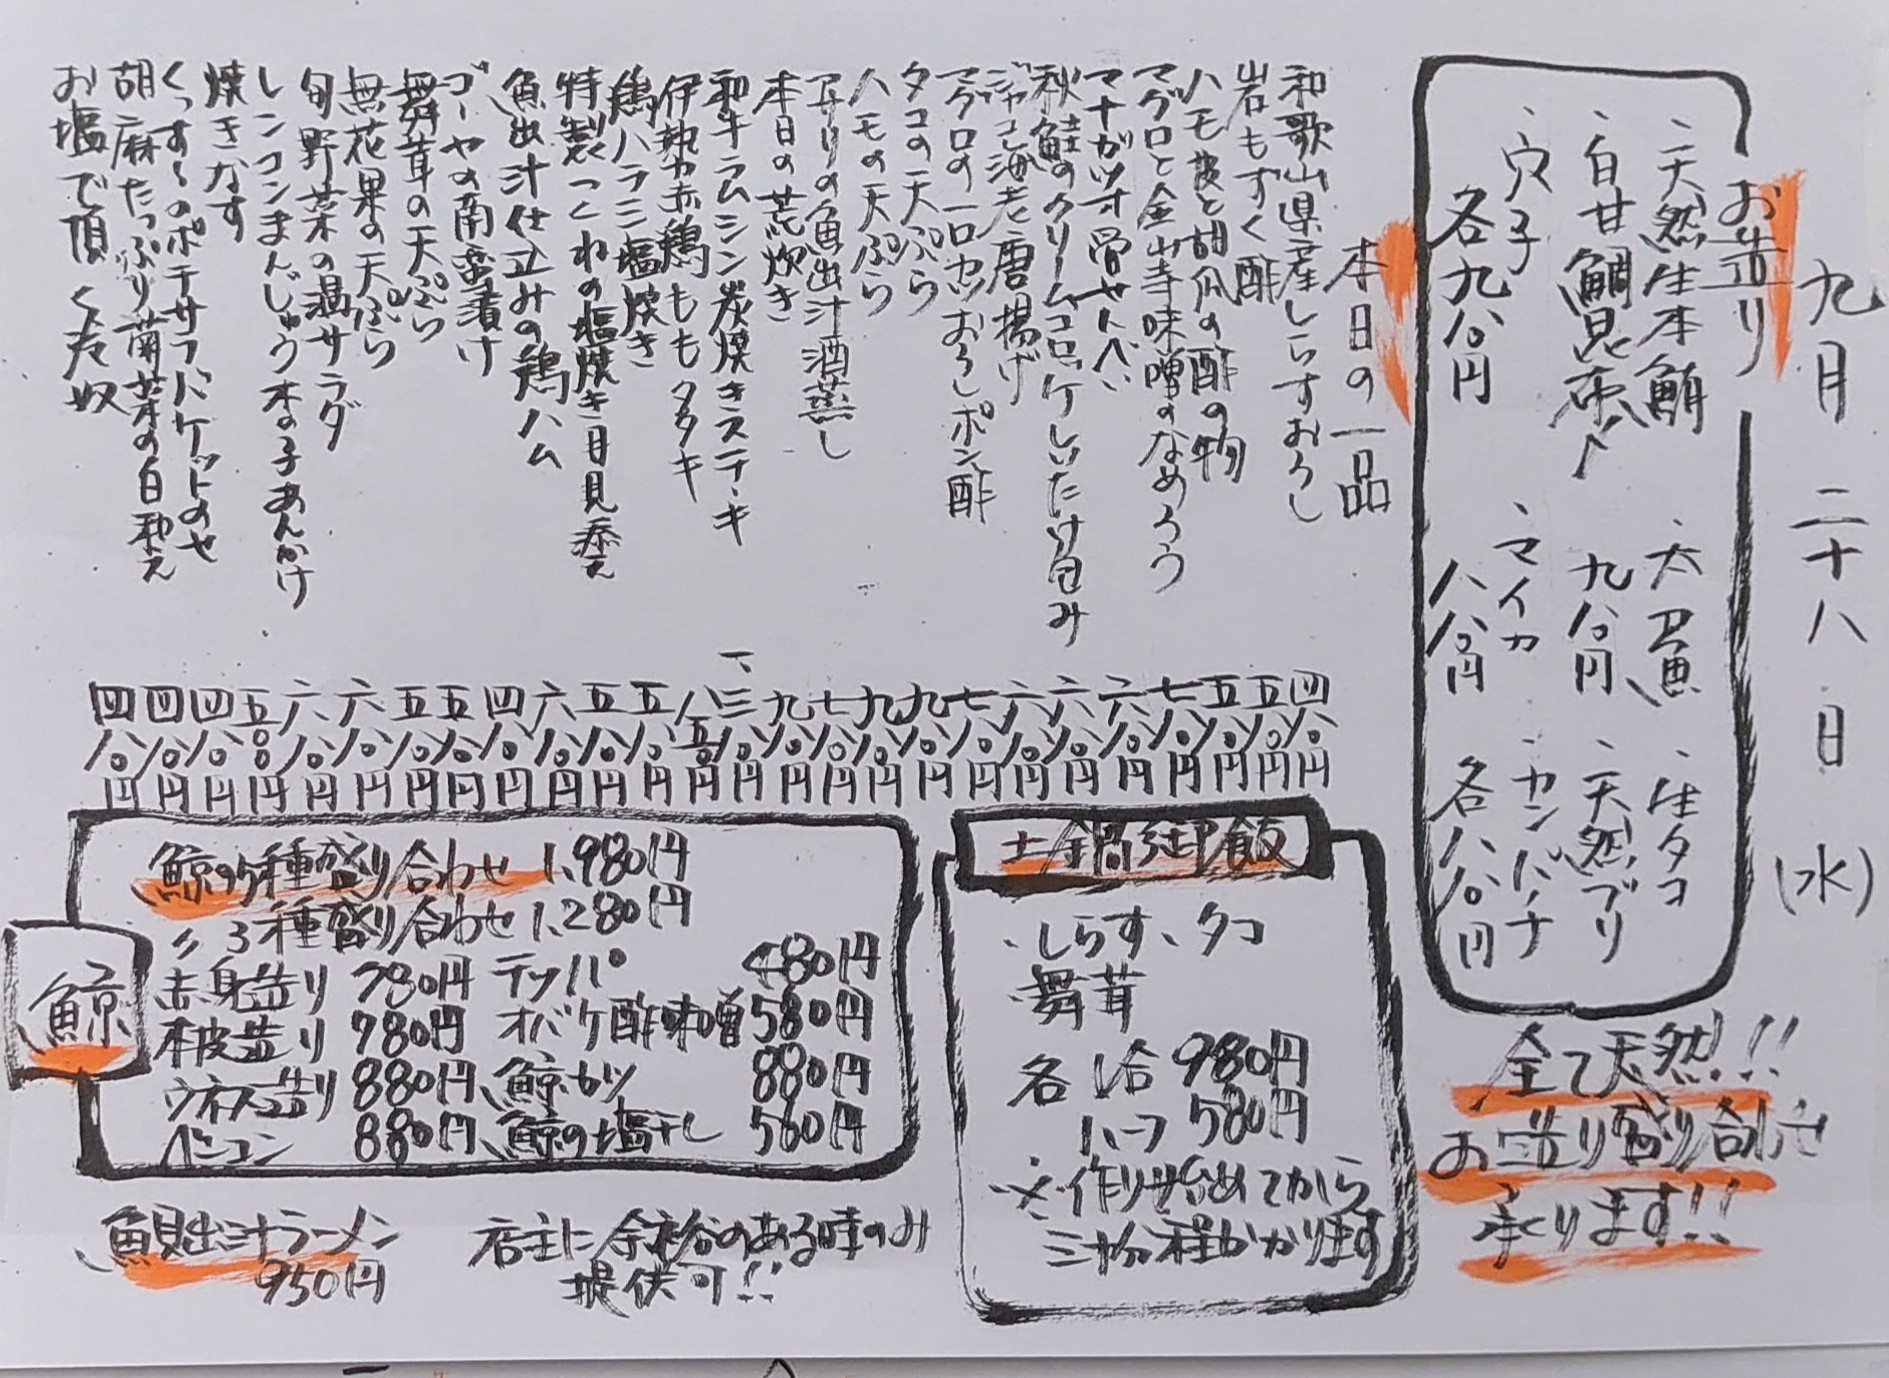 九月二十八日(水)
お造り
、天然生本鮪
、太刀魚
、生タコ
、白甘鯛昆布〆
九八〇円
、天然ブリ
、穴子
、マイカ
、カンパチ
各九八〇円
八八〇円
各八八〇円
全て天然!!
お造り盛り合わせ
承ります!!
本日の一品
和歌山県産しらすおろし 四八〇円
岩もずく酢 五八〇円
ハモ皮と胡瓜の酢の物 五八〇円
マグロと金山寺味噌のなめろう 七八〇円
マナガツオ骨せんべい 六八〇円
秋鮭のクリームコロッケしいたけ包み 六八〇円
ジャコ海老唐揚げ 六八〇円
マグロの一口カツおろしポン酢 七八〇円
タコの天ぷら 九八〇円
ハモの天ぷら 九八〇円
アサリの魚出汁酒蒸し 七八〇円
本日の荒炊き 九八〇円
和牛ラムシン炭焼きステーキ 一、三八〇円
伊勢赤鶏ももタタキ 八五〇円
鶏ハラミ塩焼き 五八〇円
特製つくねの塩焼き目見添え 五八〇円
魚出汁仕立みの鶏ハム 六八〇円
ゴーヤの南蛮漬け 四八〇円
舞茸の天ぷら 五八〇円
無花果の天ぷら 五八〇円
旬野菜の温サラダ 六八〇円
レンコンまんじゅう木の子あんかけ 六八〇円
焼きなす 五〇〇円
のポテサラバケットのせ 四八〇円
胡麻たっぷり菊菜の白和え 四八〇円
お塩で頂く冷奴 四八〇円
土鍋御飯
、しらす、タコ
、舞茸
各1合 980円
ハーフ 580円
※作り始めてから
三十分程かかります
鯨
鯨の5種盛り合わせ 1,980円
〃 3種盛り合わせ 1,280円
赤身造り 780円 テッパ 480円
本皮造り 780円 オバケ酢味噌 580円
ウネス造り 880円、鯨カツ 880円
ベーコン 880円、鯨の塩干し 560円
魚貝出汁ラーメン
950円
店主に余裕のある時のみ
提供可!!